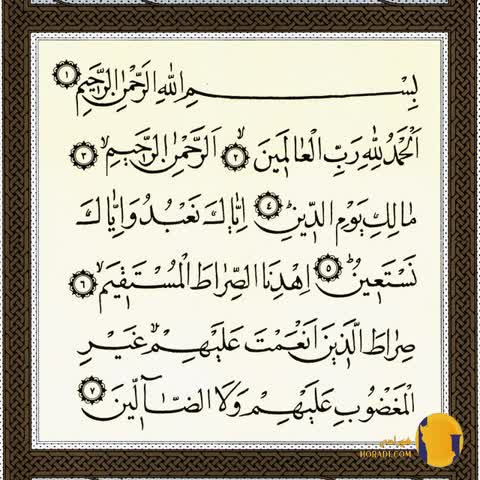 بِسْمِ اللهِ الرَّحْمٰنِ الرَّحِيمِ ١
اَلْحَمْدُ لِلّٰهِ رَبِّ الْعَالَمِينَ ٢ اَلرَّحْمٰنِ الرَّحِيمِ ٣
مَالِكِ يَوْمِ الدِّينِ ٤ اِيَّاكَ نَعْبُدُ وَاِيَّاكَ
نَسْتَعِينُ ٥ اِهْدِنَا الصِّرَاطَ الْمُسْتَقِيمَ ٦
صِرَاطَ الَّذِينَ اَنْعَمْتَ عَلَيْهِمْ غَيْرِ
الْمَغْضُوبِ عَلَيْهِمْ وَلَا الضَّآلِّينَ ٧
HORADI.COM